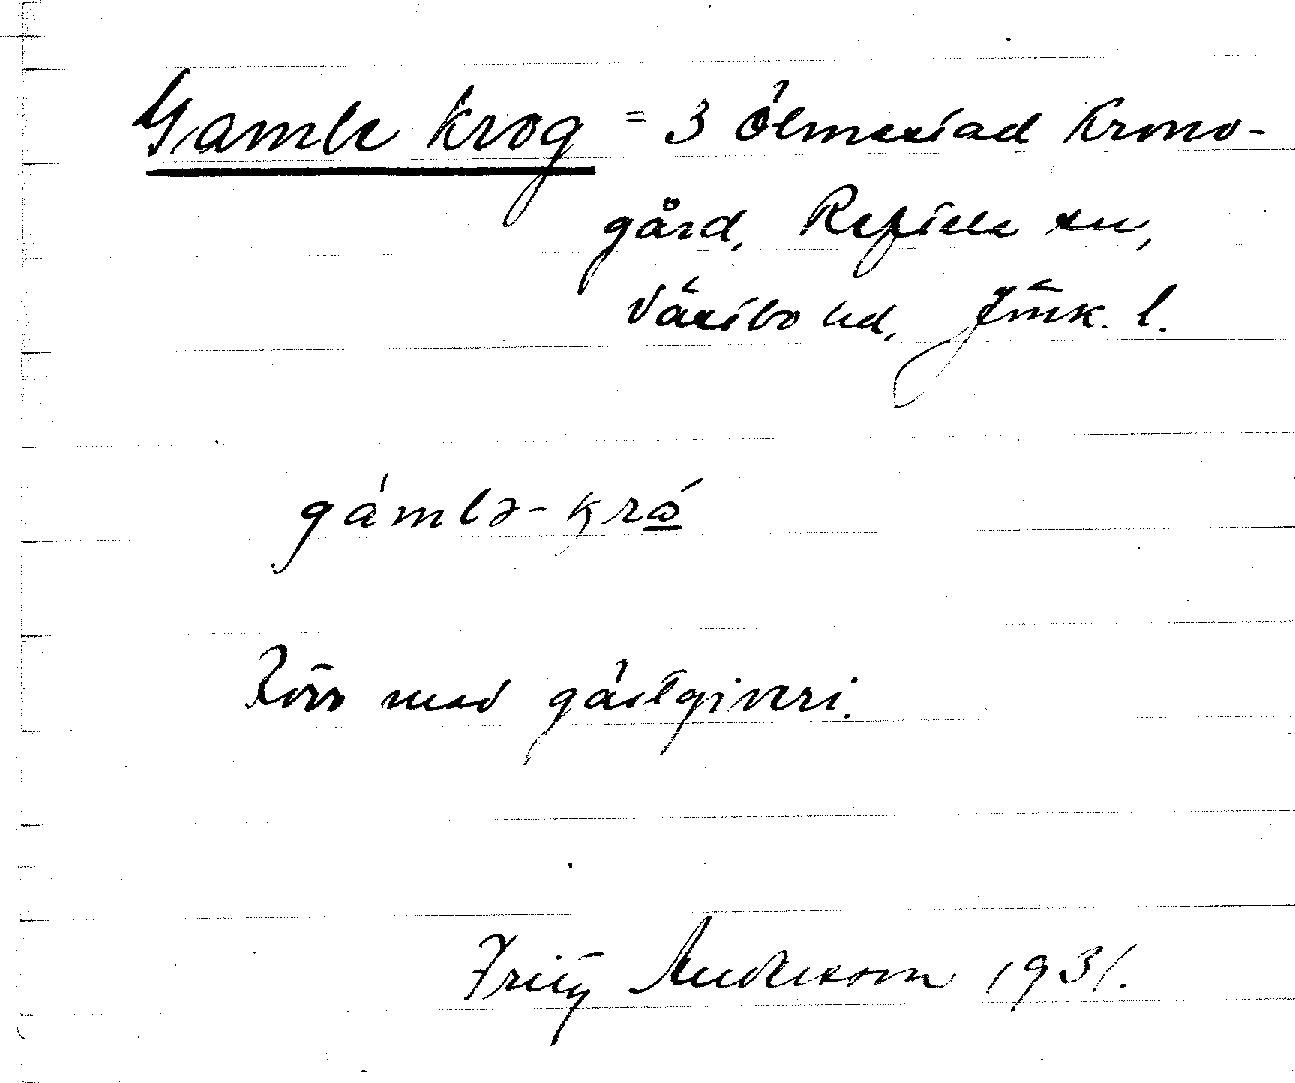 Gamle krog = 3 Ölmestad Krono-
gård, Reftele sn,
Västbo hd, Jönk. l.
gámlə-krǻ
Förr med gästgiveri.
Fritz Anderson 1931.